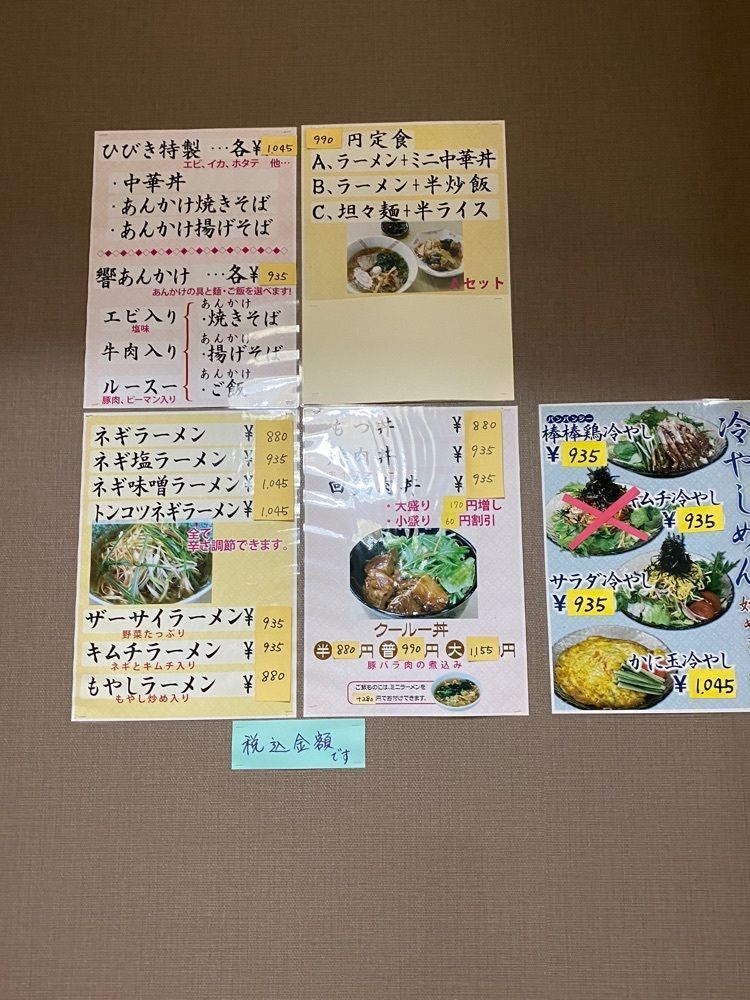 ひびき特製 …各¥1045
エビ、イカ、ホタテ 他…
・中華丼
・あんかけ焼きそば
・あんかけ揚げそば
響あんかけ …各¥935
あんかけの具と麺・ご飯を選べます!
エビ入り
塩味
牛肉入り
ルースー
豚肉、ピーマン入り
あんかけ
・焼きそば
あんかけ
・揚げそば
あんかけ
・ご飯
990円定食
A、ラーメン+ミニ中華丼
B、ラーメン+半炒飯
C、坦々麺+半ライス
Aセット
ネギラーメン ¥880
ネギ塩ラーメン ¥935
ネギ味噌ラーメン ¥1,045
トンコツネギラーメン ¥1,045
全て
辛さ調節できます。
ザーサイラーメン ¥935
野菜たっぷり
キムチラーメン ¥935
ネギとキムチ入り
もやしラーメン ¥880
もやし炒め入り
もつ丼 ¥880
肉丼 ¥935
回 肉丼 ¥935
・大盛り 170円増し
・小盛り 60円割引
クールー丼
半880円 普990円 大1,155円
豚バラ肉の煮込み
ご飯ものには、ミニラーメンを
+280円でお付けできます。
冷やしめん
バンバンジー
棒棒鶏冷やし
¥935
キムチ冷やし
¥935
サラダ冷やし
¥935
かに玉冷やし
¥1,045
税込金額
です